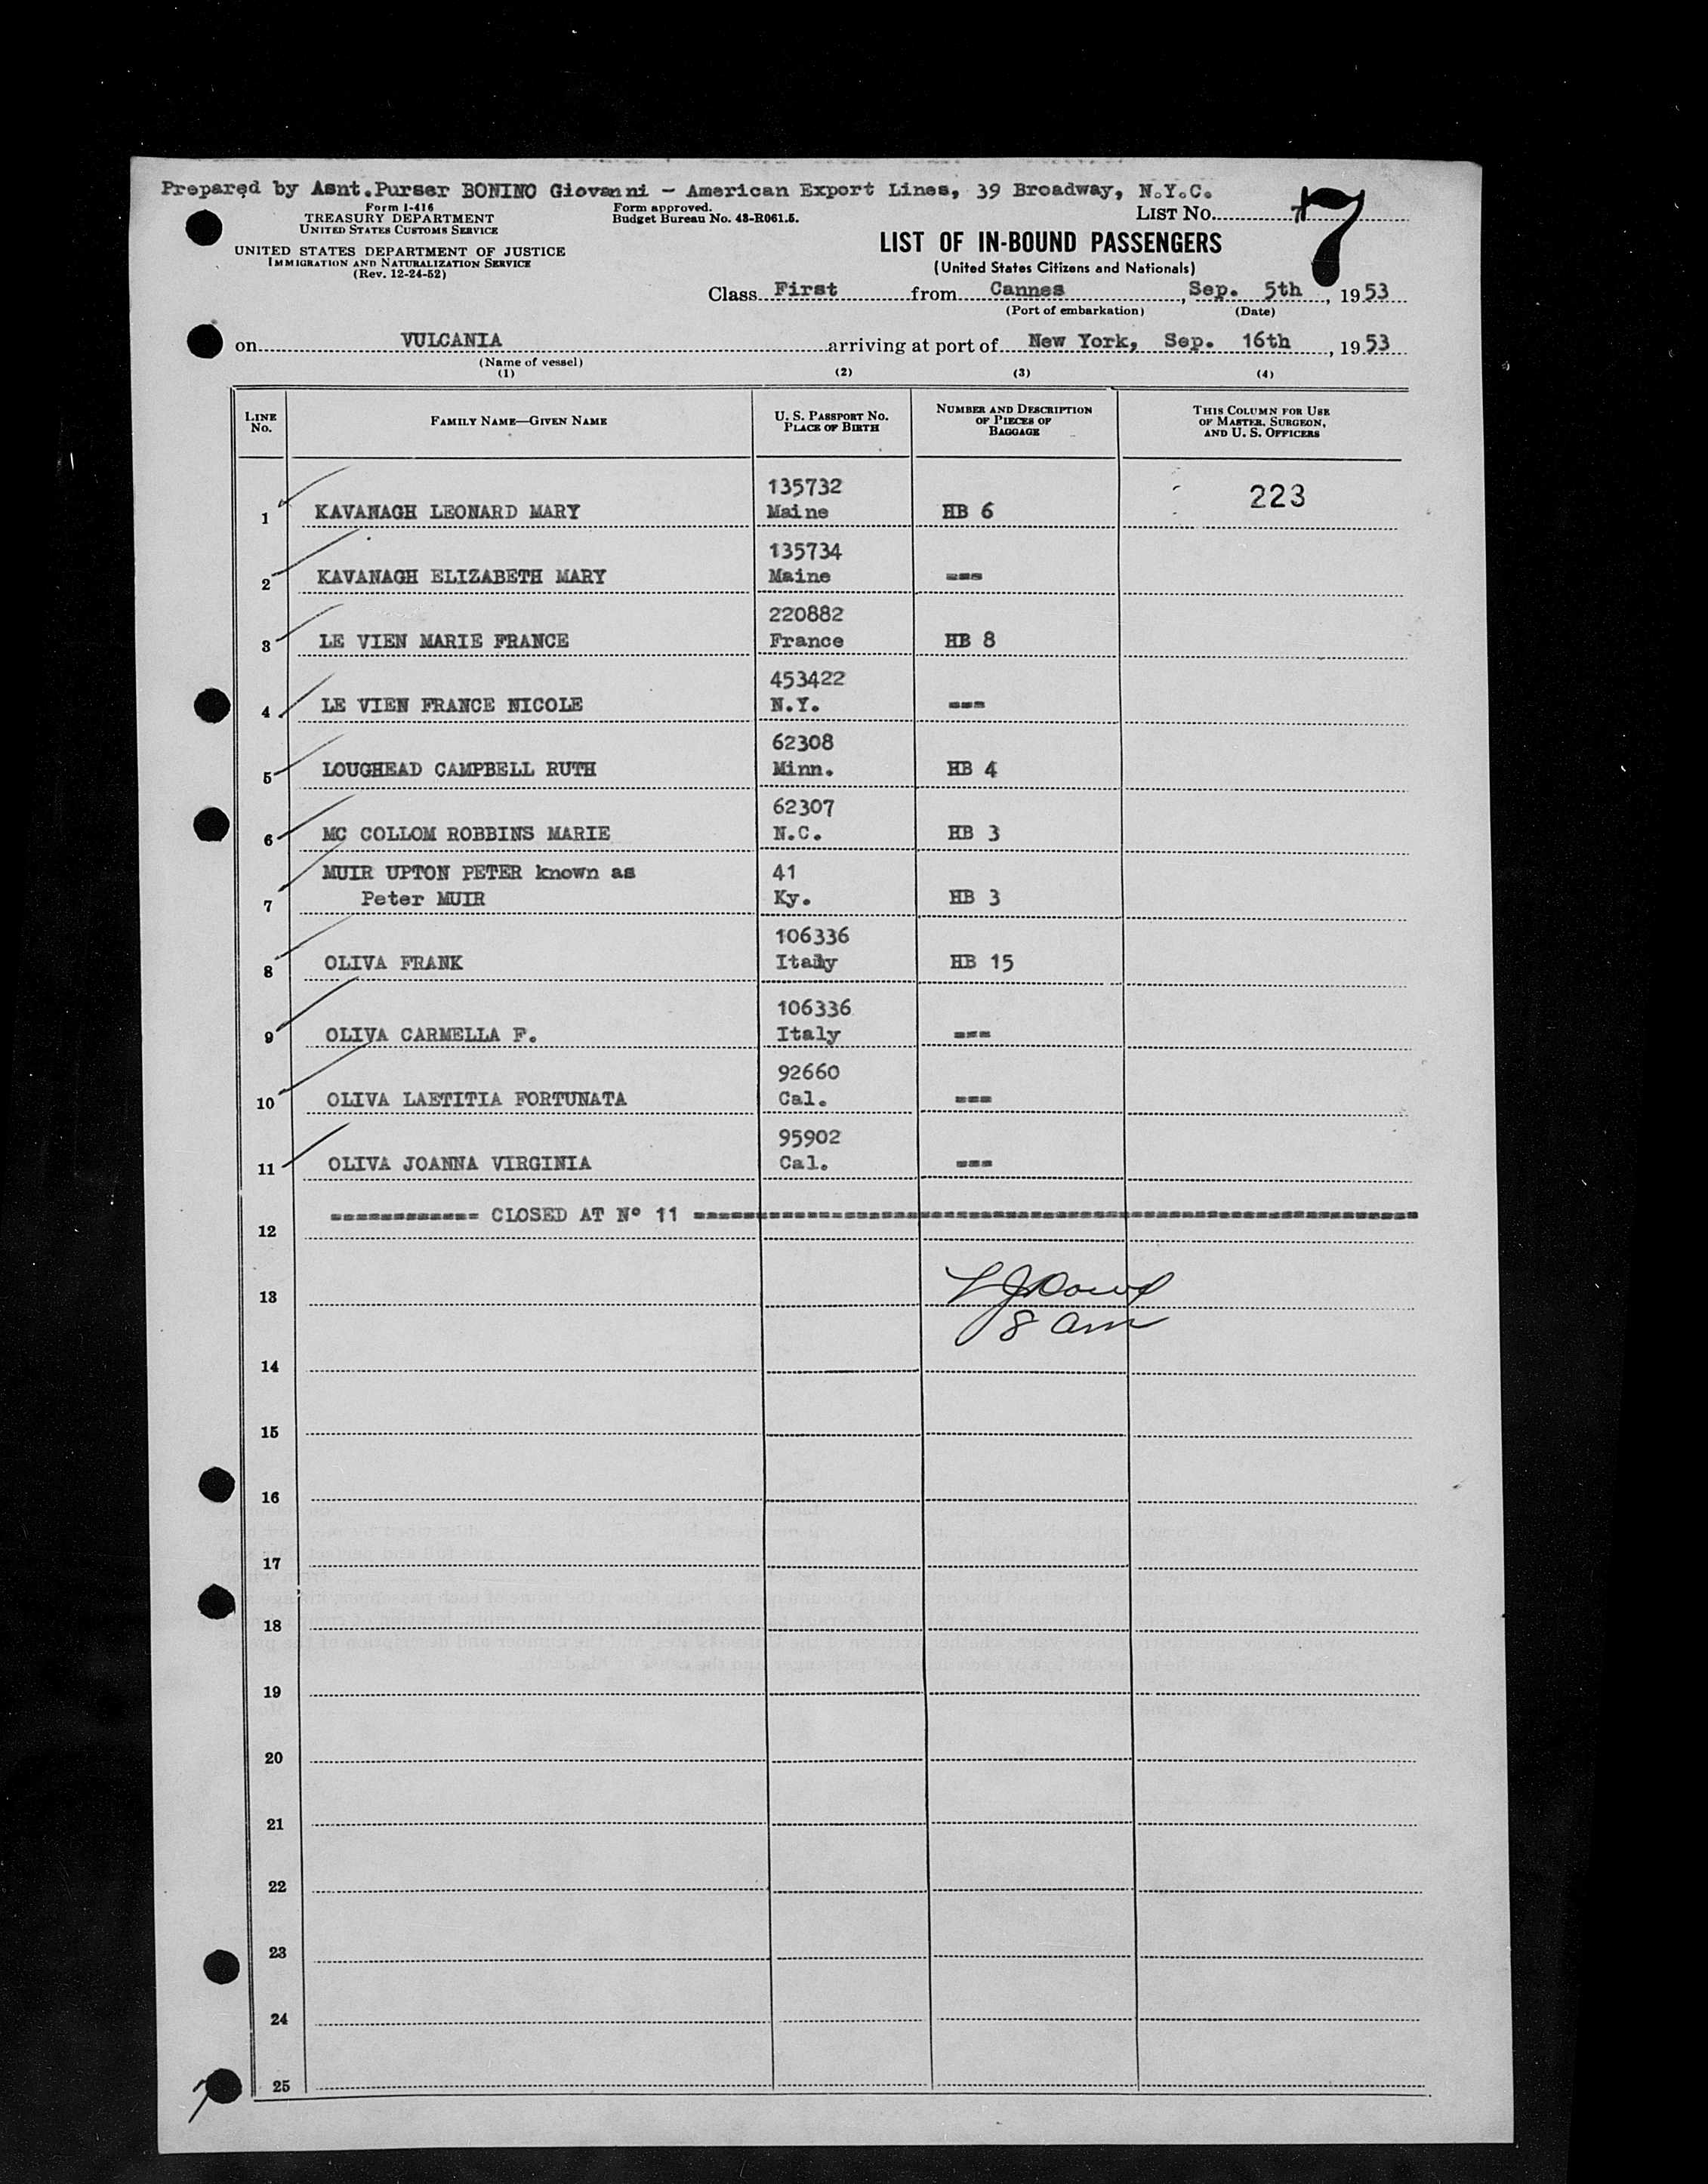 Prepared by Asnt.Purser BONINO Giovanni - American Export Lines, 39 Broadway, N.Y.C.
Form I-416
TREASURY DEPARTMENT
UNITED STATES CUSTOMS SERVICE
UNITED STATES DEPARTMENT OF JUSTICE
IMMIGRATION AND NATURALIZATION SERVICE
(Rev. 12-24-52)
Form approved.
Budget Bureau No. 43-R061.5.
LIST NO. 7 7
LIST OF IN-BOUND PASSENGERS
(United States Citizens and Nationals)
Class First from Cannes, Sep. 5th, 1953
(Port of embarkation) (Date)
on VULCANIA arriving at port of New York, Sep. 16th, 1953
(Name of vessel)
(1) (2) (3) (4)
LINE No. FAMILY NAME—GIVEN NAME U. S. PASSPORT NO. PLACE OF BIRTH NUMBER AND DESCRIPTION OF PIECES OF BAGGAGE THIS COLUMN FOR USE OF MASTER, SURGEON, AND U. S. OFFICERS
135732 223
1 KAVANAGH LEONARD MARY Maine HB 6
135734
2 KAVANAGH ELIZABETH MARY Maine ---
220882
3 LE VIEN MARIE FRANCE France HB 8
453422
4 LE VIEN FRANCE NICOLE N.Y. ---
62308
5 LOUGHEAD CAMPBELL RUTH Minn. HB 4
62307
6 MC COLLOM ROBBINS MARIE N.C. HB 3
MUIR UPTON PETER known as 41
7 Peter MUIR Ky. HB 3
106336
8 OLIVA FRANK Italy HB 15
106336
9 OLIVA CARMELLA F. Italy ---
92660
10 OLIVA LAETITIA FORTUNATA Cal. ---
95902
11 OLIVA JOANNA VIRGINIA Cal. ---
------------ CLOSED AT Nº 11 ------------
12
13
8 am
14
15
16
17
18
19
20
21
22
23
24
25
7